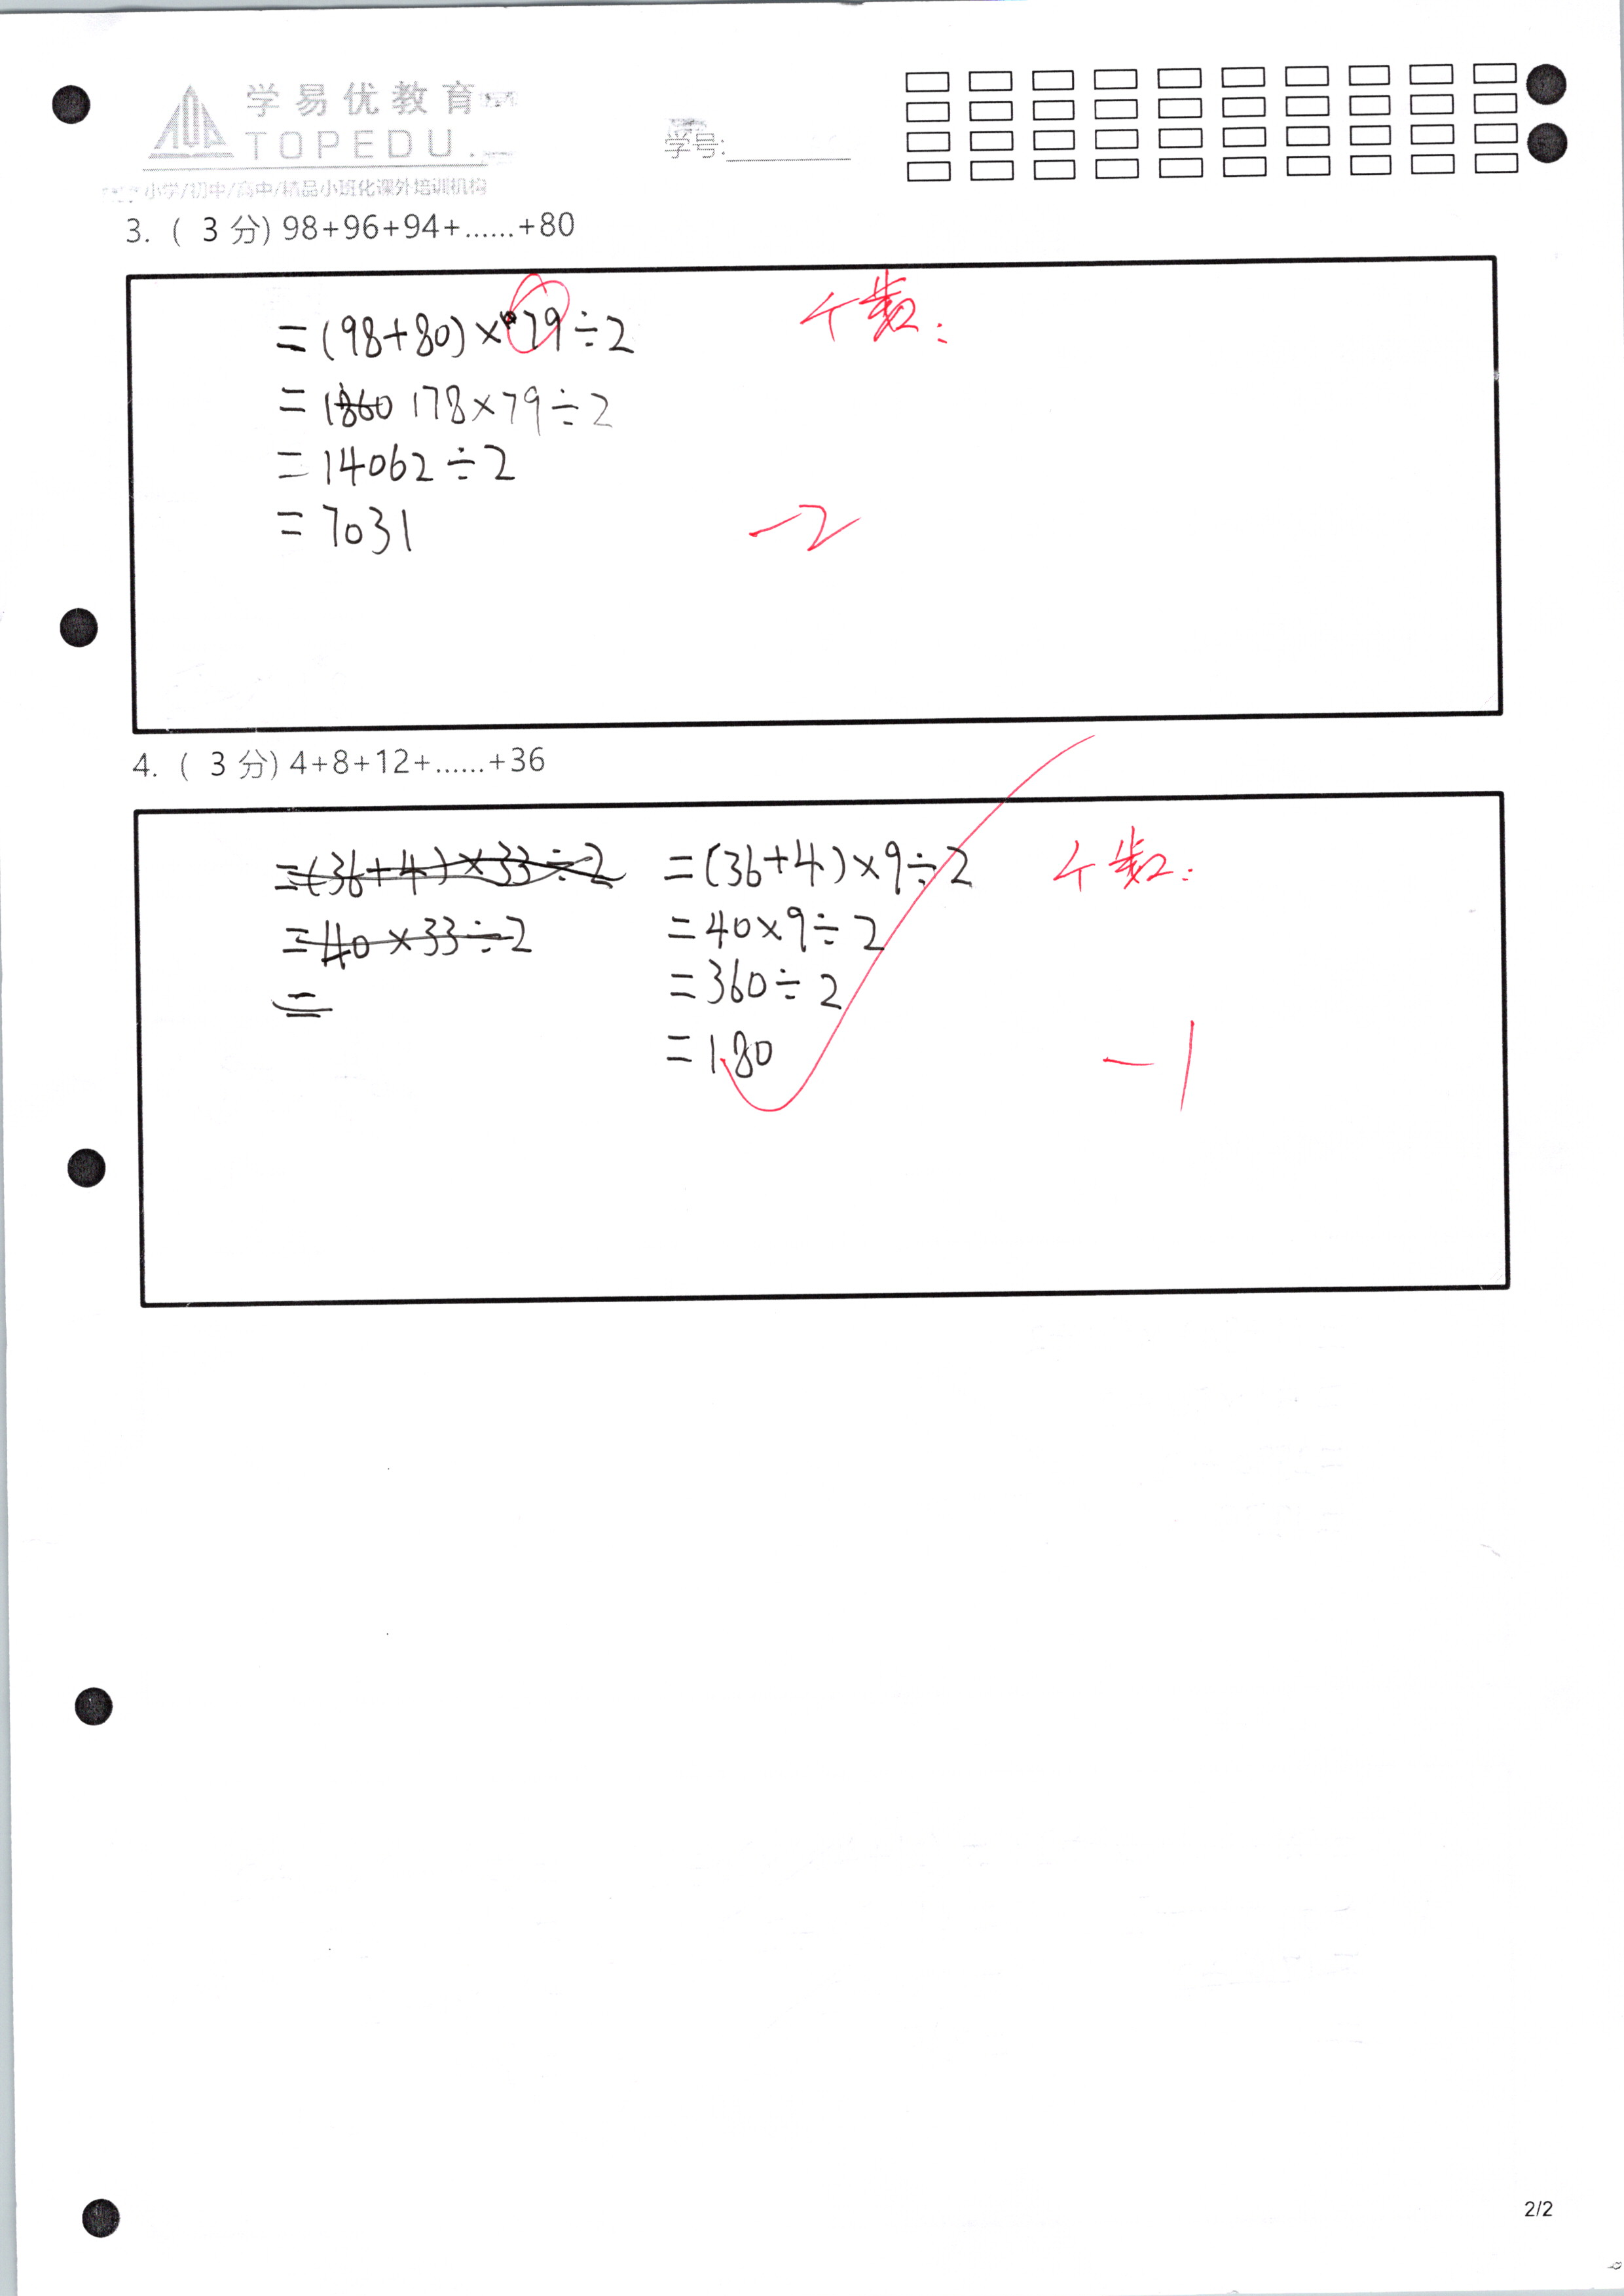 学易优教育
TOPEDU.
学号:
小学/初中/高中/精品小班化课外培训机构
3. ( 3 分) 98+96+94+......+80
=(98+80)×79÷2
个数:
=1860 178×79÷2
=14062÷2
=7031
-2
4. ( 3 分) 4+8+12+......+36
=(36+4)×33÷2
=40×33÷2
=
=(36+4)×9÷2
个数:
=40×9÷2
=360÷2
=180
-1
2/2